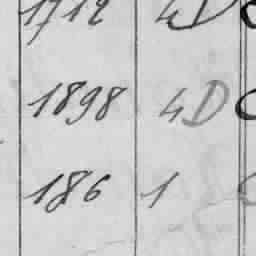 1712 4D
1898 4D
186 1